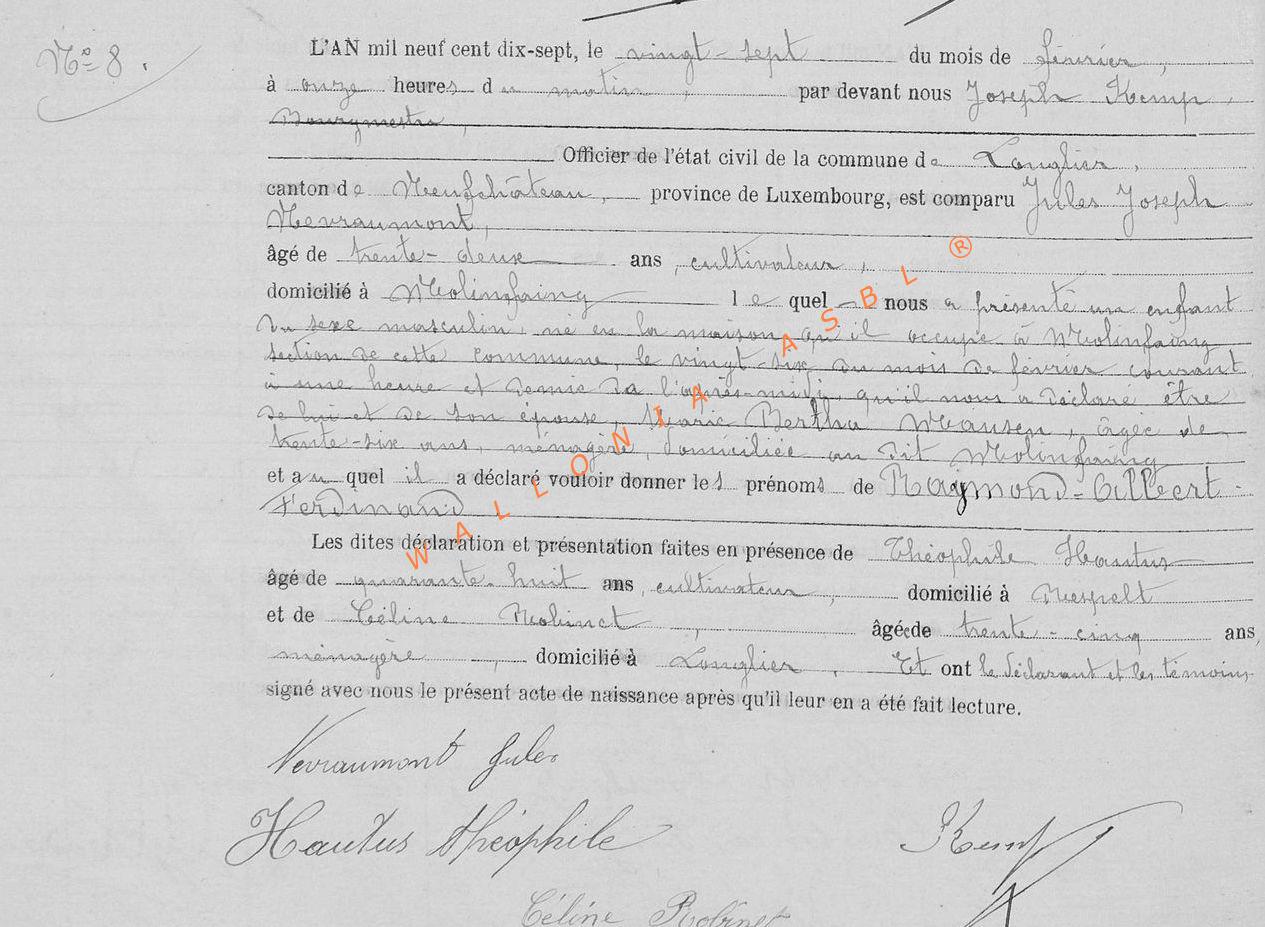 N° 8.
L'AN mil neuf cent dix-sept, le vingt-sept du mois de février,
à onze heures du matin, par devant nous Joseph Kemp,
Bourgmestre,
Officier de l'état civil de la commune de Longlier,
canton de Neufchâteau, province de Luxembourg, est comparu Jules Joseph
Nevraumont,
âgé de trente-deux ans, cultivateur,
domicilié à Molinfaing lequel nous a présenté un enfant
du sexe masculin, né en la maison qu'il occupe à Molinfaing
section de cette commune, le vingt-six du mois de février courant
à une heure et demie de l'après-midi, qu'il nous a déclaré être
de lui et de son épouse, Marie Bertha Mausen, âgée de
trente-six ans, ménagère, domiciliée au dit Molinfaing
et auquel il a déclaré vouloir donner les prénoms de Raymond-Albert-
Ferdinand
Les dites déclaration et présentation faites en présence de Théophile Hautus
âgé de quarante-huit ans, cultivateur, domicilié à Respelt
et de Céline Robinet, âgée de trente-cinq ans,
ménagère, domicilié à Longlier. Et ont le déclarant et les témoins
signé avec nous le présent acte de naissance après qu'il leur en a été fait lecture.
Nevraumont Jules
Hautus théophile Kemp
Céline Robinet
WALLONIA ASBL ®